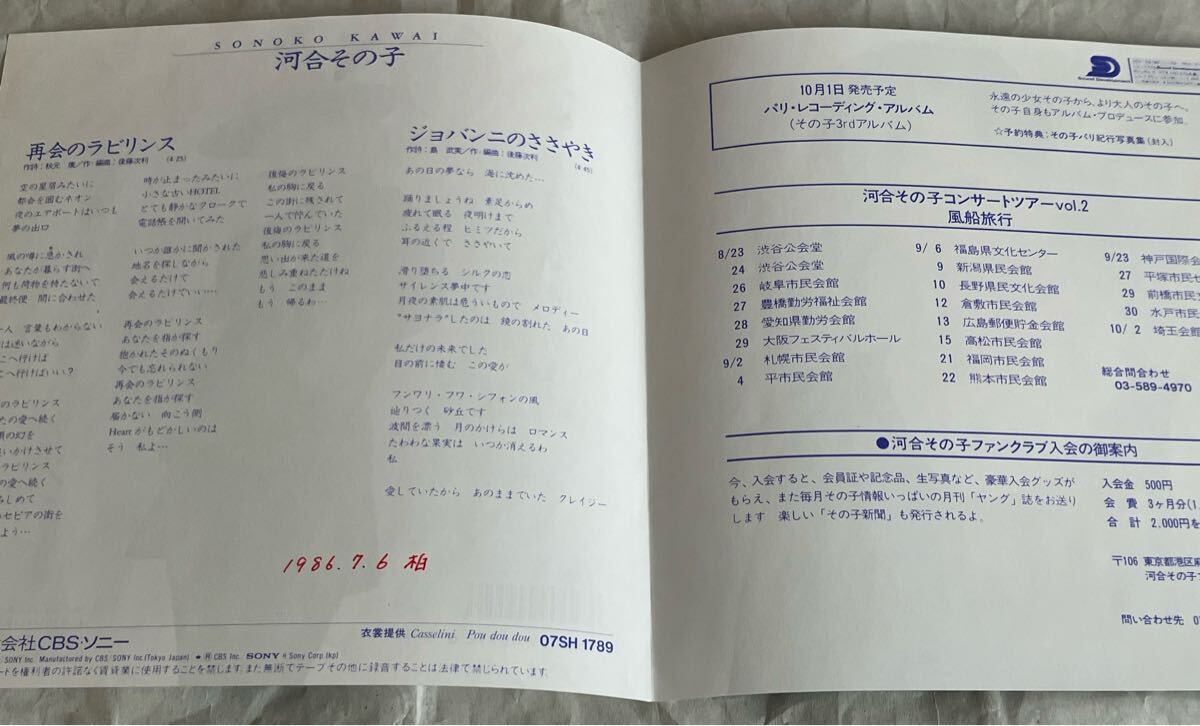 SONOKO KAWAI
河合その子
再会のラビリンス
作詩:秋元 康/作・編曲:後藤次利 (4:25)
空の星屑みたいに
都会を囲むネオン
夜のエアポートはいつも
夢の出口
風の噂に急かされ
あなたが暮らす街へ
何も荷物を持たないで
最終便 間に合わせた
一人 言葉もわからない
は迷いながら
こへ行けば
こへ行けばいい?
のラビリンス
たの愛へ続く
頃の幻を
いかけさせて
ラビリンス
の愛へ続く
しめて
セピアの街を
よう…
時が止まったみたいに
小さな古いHOTEL
とても静かなクロークで
電話帳を開いてみた
いつか誰かに聞かされた
地名を探しながら
会えるだけで
会えるだけでいい…
再会のラビリンス
あなたを指が探す
抱かれたそのぬくもり
今でも忘れられない
再会のラビリンス
あなたを指が探す
届かない 向こう側
Heartがもどかしいのは
そう 私よ…
後悔のラビリンス
私の胸に戻る
この街に残されて
一人で佇んでいた
後悔のラビリンス
私の胸に戻る
思い出が来た道を
悲しみ重ねただけね
もう このまま
もう 帰るわ…
ジョバンニのささやき
作詩:島 武実/作・編曲:後藤次利 (4:45)
あの日の夢なら 海に沈めた…
踊りましょうね 素足からめ
疲れて眠る 夜明けまで
ふるえる程 ヒミツだから
耳の近くで ささやいて
滑り堕ちる シルクの恋
サイレンス夢中です
月夜の素肌は危ういもので メロディー
“サヨナラ”したのは 鏡の割れた あの日
私だけの未来でした
目の前に棲む この愛が
フンワリ・フワ・シフォンの風
辿りつく 砂丘です
波間を漂う 月のかけらは ロマンス
たわわな果実は いつか消えるわ
私
愛していたから あのままでいた クレイジー
1986.7.6 柏
衣裳提供 Casselini Pou dou dou 07SH 1789
会社CBS・ソニー
SONY Inc. Manufactured by CBS/SONY Inc.(Tokyo Japan) ●Ⓡ CBS Inc. SONY ® Sony Corp.(kp)
ードを権利者の許諾なく賃貸業に使用することを禁じます。また無断でテープその他に録音することは法律で禁じられています。
Sound Development
10月1日発売予定
パリ・レコーディング・アルバム
(その子3rdアルバム)
永遠の少女その子から、より大人のその子へ。
その子自身もアルバム・プロデュースに参加。
☆予約特典:その子パリ紀行写真集(封入)
河合その子コンサートツアーvol.2
風船旅行
8/23 渋谷公会堂
24 渋谷公会堂
26 岐阜市民会館
27 豊橋勤労福祉会館
28 愛知県勤労会館
29 大阪フェスティバルホール
9/2 札幌市民会館
4 平市民会館
9/6 福島県文化センター
9 新潟県民会館
10 長野県民文化会館
12 倉敷市民会館
13 広島郵便貯金会館
15 高松市民会館
21 福岡市民会館
22 熊本市民会館
9/23 神戸国際会
27 平塚市民セ
29 前橋市民
30 水戸市民
10/2 埼玉会館
総合問合わせ
03-589-4970
●河合その子ファンクラブ入会の御案内
今、入会すると、会員証や記念品、生写真など、豪華入会グッズが
もらえ、また毎月その子情報いっぱいの月刊「ヤング」誌をお送り
します 楽しい「その子新聞」も発行されるよ。
入会金 500円
会 費 3ヶ月分(1.
合 計 2,000円を
〒106 東京都港区麻
河合その子フ
問い合わせ先 0